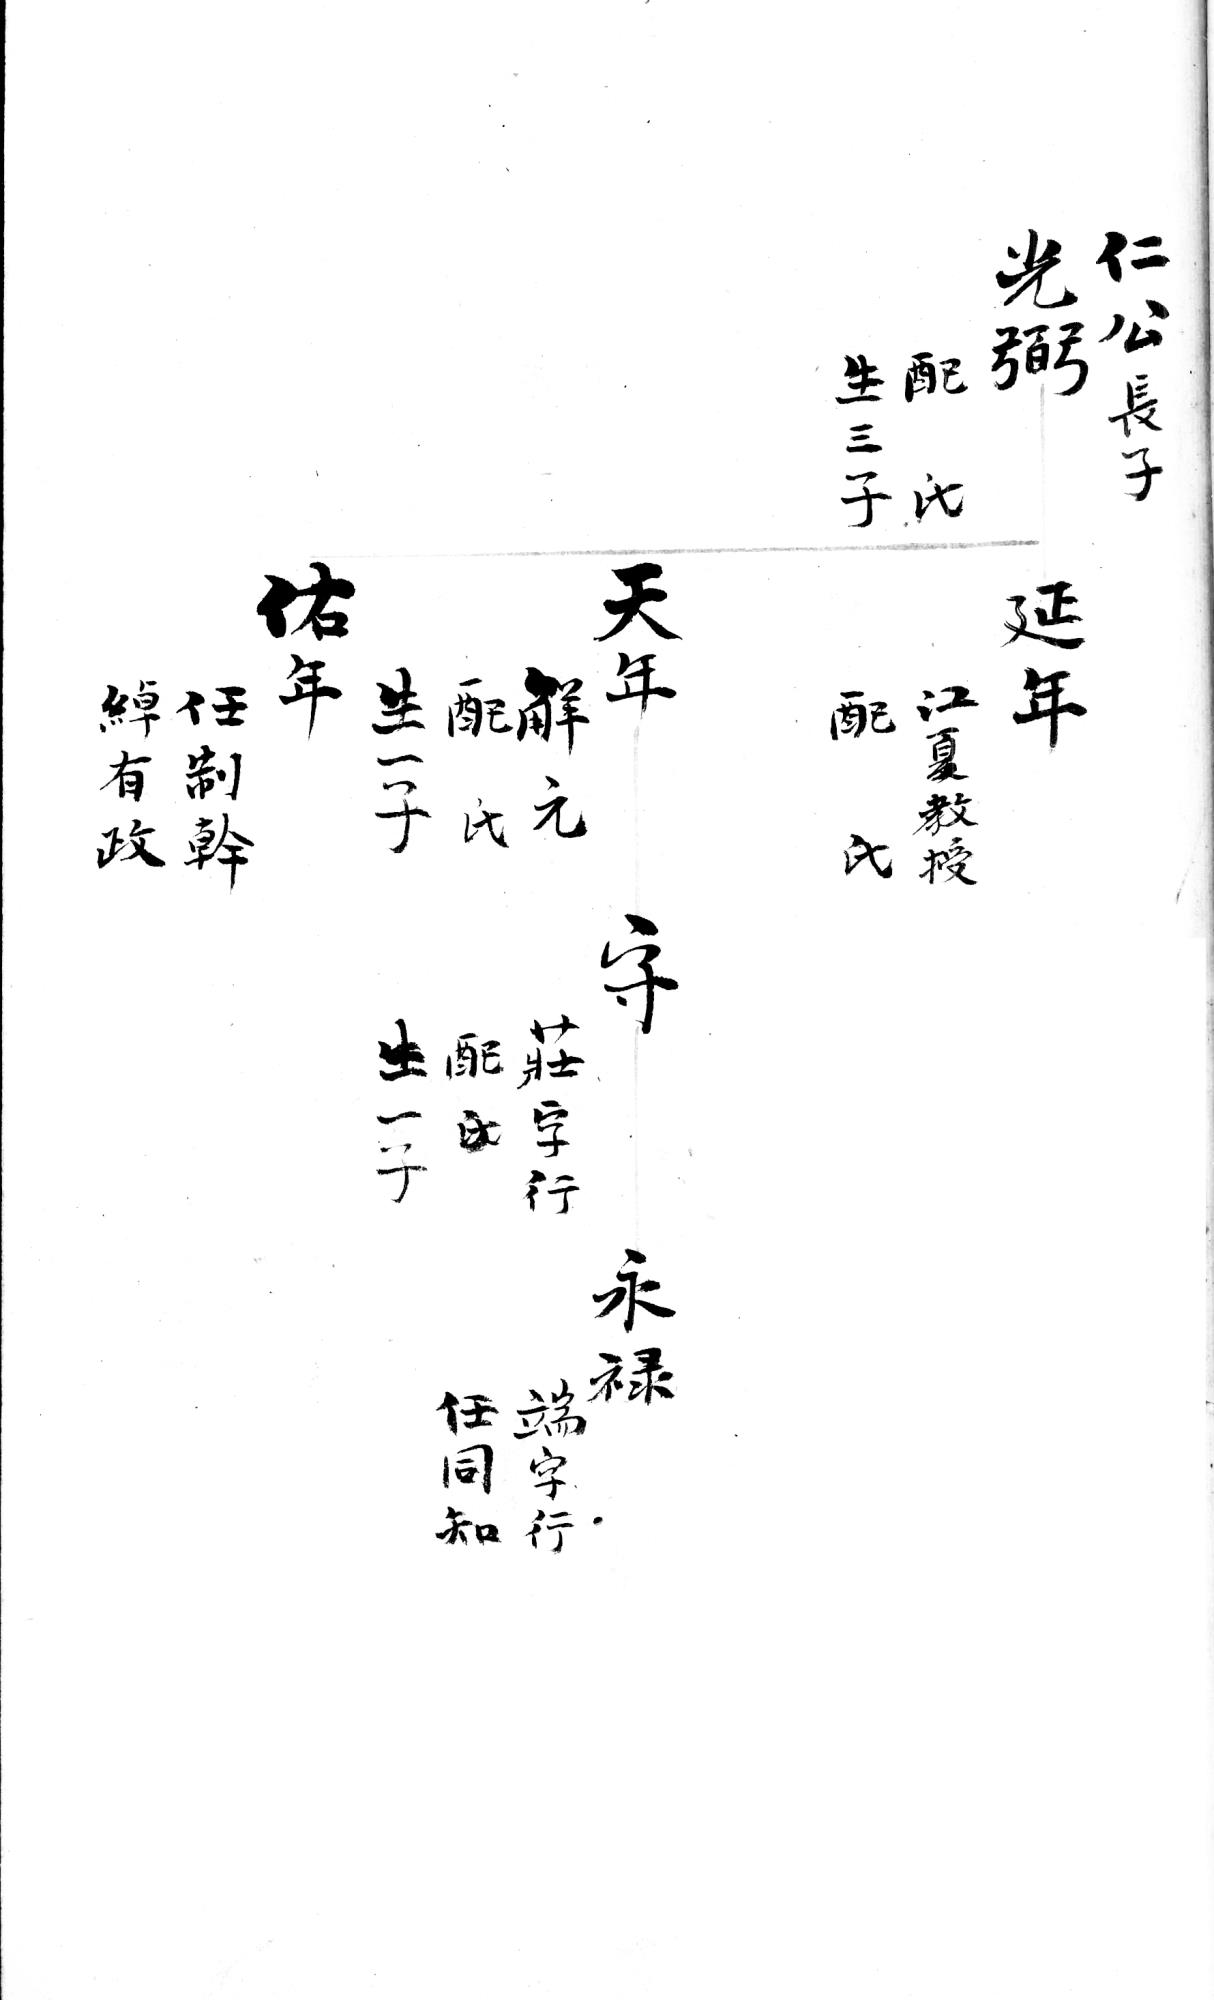 仁公長子
光弼
配 氏
生三子
延年
江夏教授
配 氏
天年
解元
配 氏
生一子
佑年
任制幹
綽有政
守
莊字行
配氏
生一子
永禄
端字行
任同知